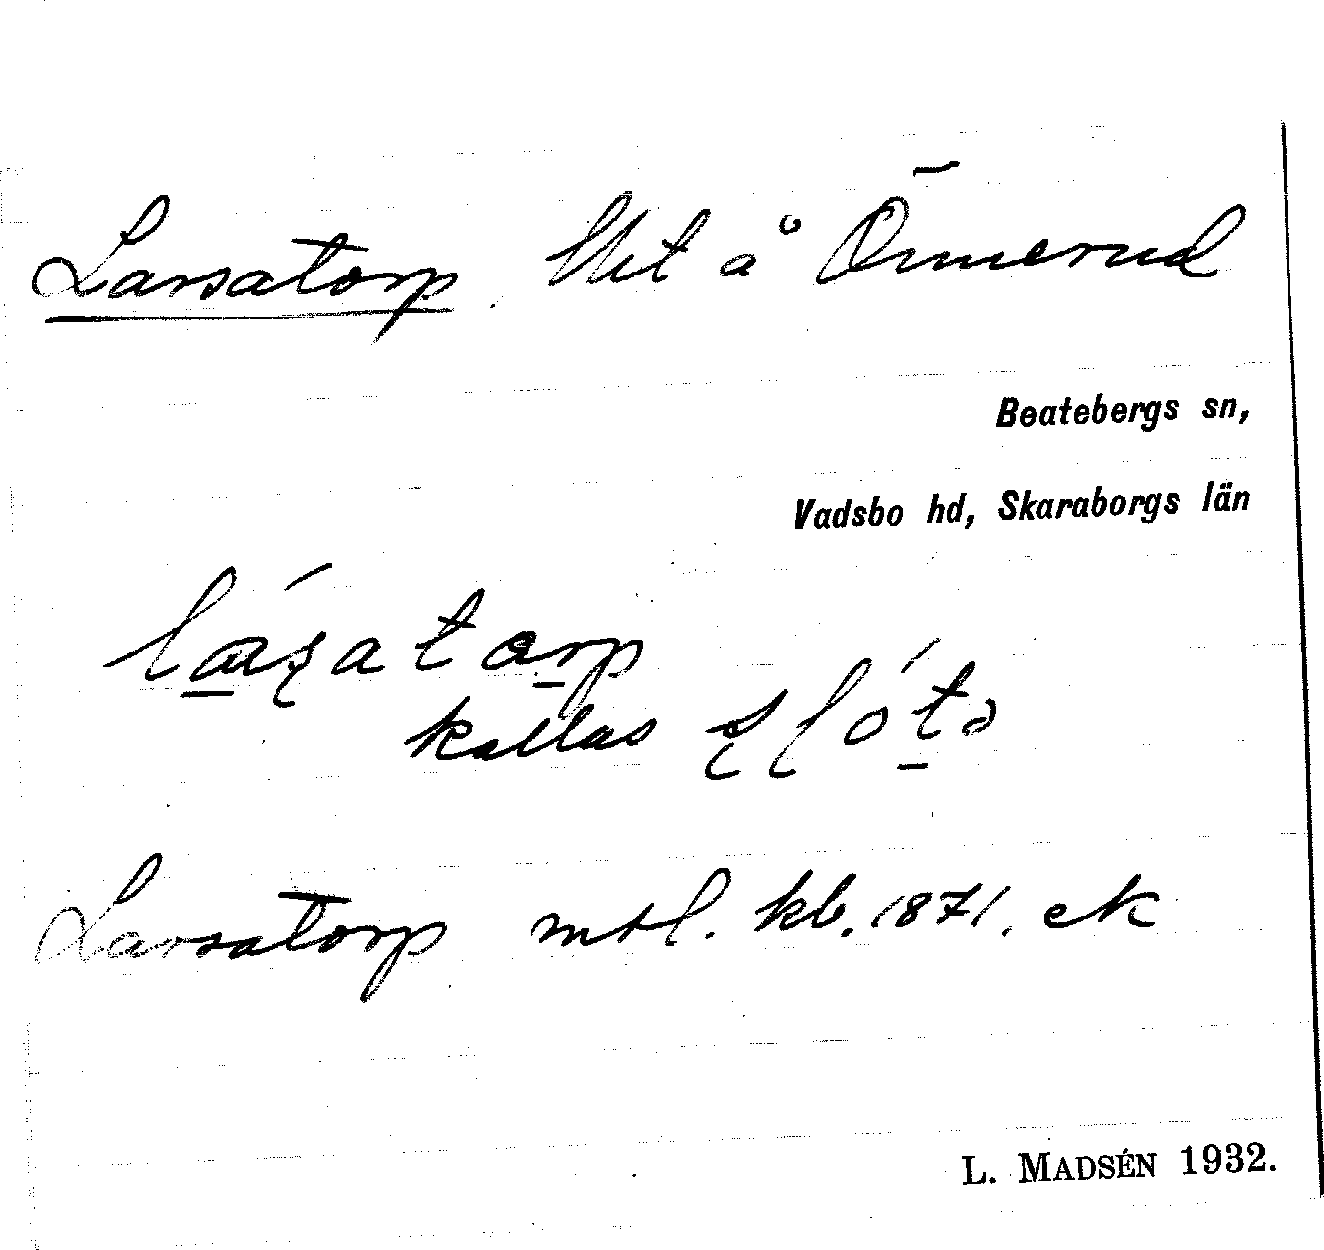 Larsatorp. lht å Ömnerud
Beatebergs sn,
Vadsbo hd, Skaraborgs län
kallas
Larsatorp mtl. kb. 1871. ek
L. MADSÉN 1932.